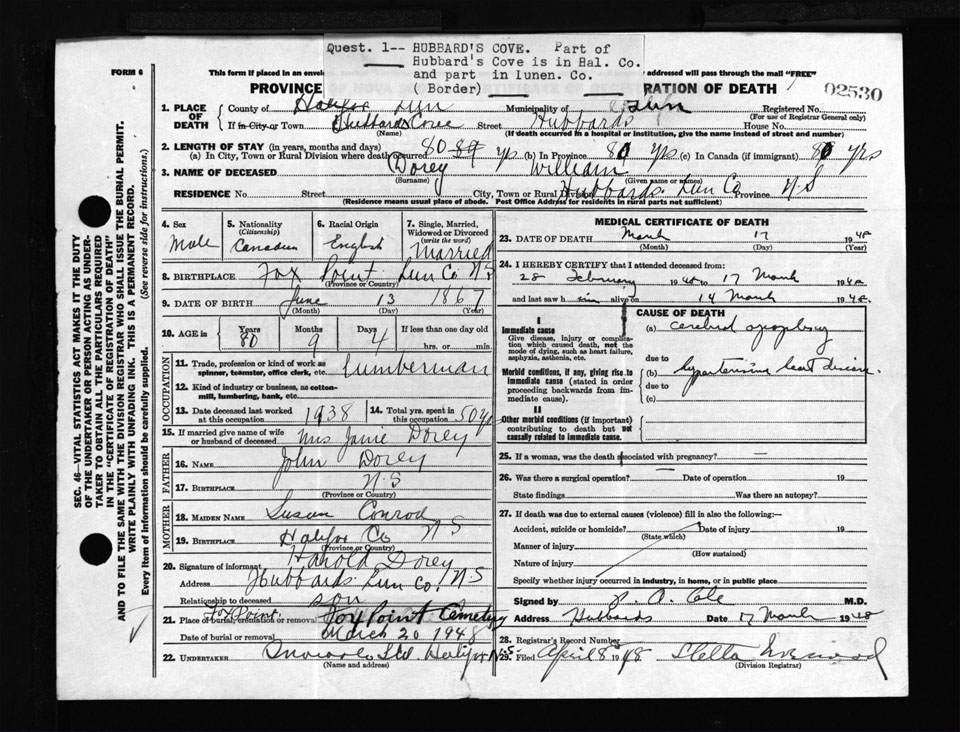 Quest. 1-- HUBBARD'S COVE. Part of
Hubbard's Cove is in Hal. Co.
and part in Lunen. Co.
( Border)
FORM 6
This form if placed in an envelo
addressed will pass through the mail "FREE"
PROVINCE
RATION OF DEATH
02530
1. PLACE OF DEATH
County of Halifax Lun
Municipality of Lun
Registered No.
(For use of Registrar General only)
If in City or Town Hubbards Cove
(Name)
Street Hubbards
House No.
(If death occurred in a hospital or institution, give the name instead of street and number)
2. LENGTH OF STAY (in years, months and days)
(a) In City, Town or Rural Division where death occurred 80 yrs (b) In Province 80 yrs (c) In Canada (if immigrant) 80 yrs
3. NAME OF DECEASED Dorey William
(Surname) (Given name or names)
RESIDENCE No. Street City, Town or Rural Division Hubbards Lun Co Province N S
(Residence means usual place of abode. Post Office Address for residents in rural parts not sufficient)
4. Sex
Male
5. Nationality
(Citizenship)
Canadian
6. Racial Origin
English
7. Single, Married,
Widowed or Divorced
(write the word)
Married
8. BIRTHPLACE Fox Point Lun Co N S
(Province or Country)
9. DATE OF BIRTH June 13 1867
(Month) (Day) (Year)
10. AGE in
Years Months Days If less than one day old
80 9 4 hrs. or min.
OCCUPATION
11. Trade, profession or kind of work as
spinner, teamster, office clerk, etc. Lumberman
12. Kind of industry or business, as cotton-
mill, lumbering, bank, etc.
13. Date deceased last worked
at this occupation 1938
14. Total yrs. spent in
this occupation 50 yrs
15. If married give name of wife
or husband of deceased Mrs Janie Dorey
FATHER
16. NAME John Dorey
17. BIRTHPLACE N S
(Province or Country)
MOTHER
18. MAIDEN NAME Susan Conrod
19. BIRTHPLACE Halifax Co N S
(Province or Country)
20. Signature of informant Harold Dorey
Address Hubbards Lun Co. N S
Relationship to deceased son
Fox Point
21. Place of burial, cremation or removal Fox Point Cemetery
Date of burial or removal March 20 1948
22. UNDERTAKER Ltd. Halifax N.S.
(Name and address)
MEDICAL CERTIFICATE OF DEATH
23. DATE OF DEATH March 17 1948
(Month) (Day) (Year)
24. I HEREBY CERTIFY that I attended deceased from:
28 February 1948 to 17 March 1948
and last saw him alive on 14 March 1948.
I
Immediate cause
Give disease, injury or complica-
tion which caused death, not the
mode of dying, such as heart failure,
asphyxia, asthenia, etc.
Morbid conditions, if any, giving rise to
immediate cause (stated in order
proceeding backwards from im-
mediate cause).
II
Other morbid conditions (if important)
contributing to death but not
causally related to immediate cause.
CAUSE OF DEATH
(a) cerebral apoplexy
due to
(b) hypertensive heart disease.
due to
(c)
25. If a woman, was the death associated with pregnancy? -
26. Was there a surgical operation? - Date of operation 19
State findings Was there an autopsy?
27. If death was due to external causes (violence) fill in also the following:—
Accident, suicide or homicide? Date of injury 19
(State which)
Manner of injury
(How sustained)
Nature of injury
Specify whether injury occurred in industry, in home, or in public place
Signed by Cole M.D.
Address Hubbards Date 17 March 1948
28. Registrar's Record Number
29. Filed April 8 1948 Stella
(Division Registrar)
SEC. 46—VITAL STATISTICS ACT MAKES IT THE DUTY
OF THE UNDERTAKER OR PERSON ACTING AS UNDER-
TAKER TO OBTAIN ALL THE PARTICULARS REQUIRED
IN THE "CERTIFICATE OF REGISTRATION OF DEATH"
AND TO FILE THE SAME WITH THE DIVISION REGISTRAR WHO SHALL ISSUE THE BURIAL PERMIT.
WRITE PLAINLY WITH UNFADING INK. THIS IS A PERMANENT RECORD.
Every item of information should be carefully supplied. (See reverse side for instructions.)